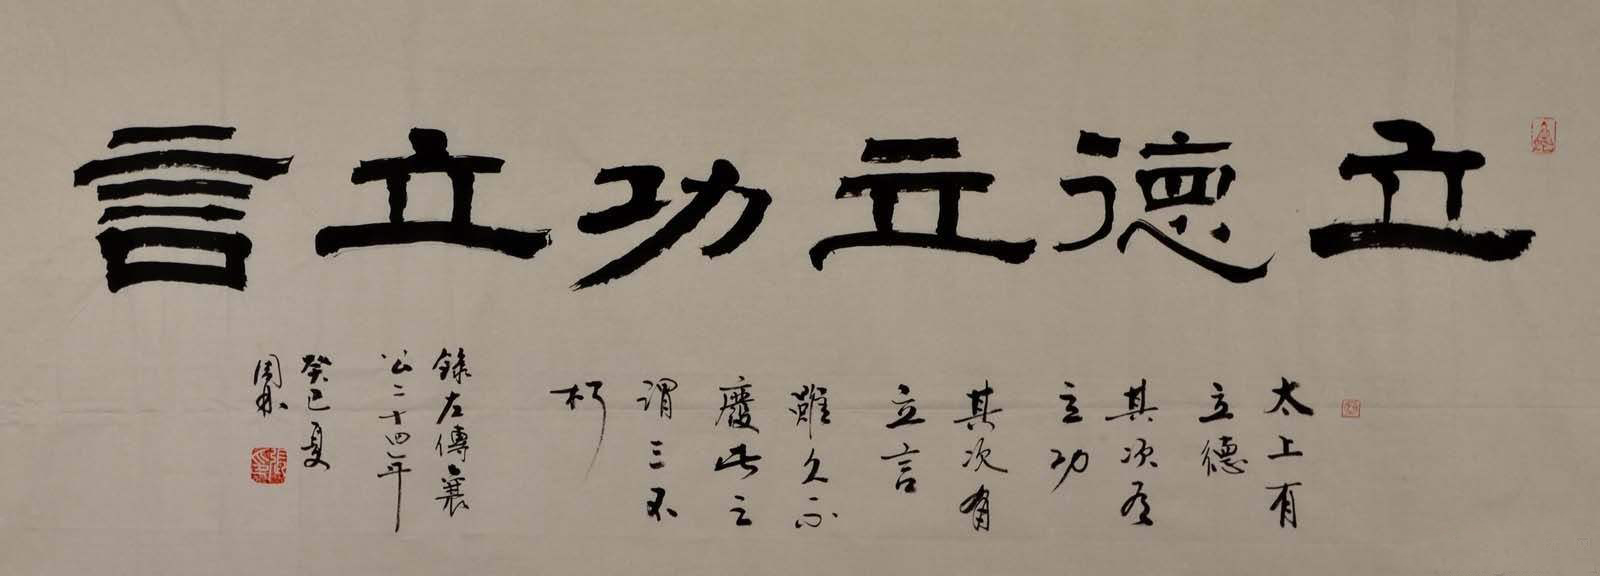 立德立功立言
太上有
立德
其次有
立功
其次有
立言
雖久不
廢此之
謂三不
朽
錄左傳襄
公二十四年
癸巳夏